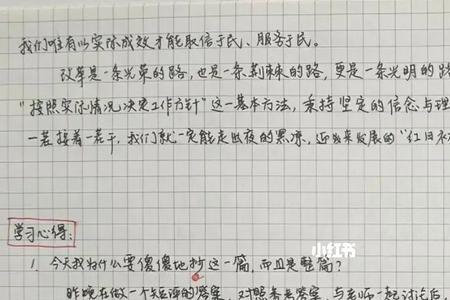 我们唯有以实际成效才能取信于民、服务于民。
改革是一条光荣的路,也是一条荆棘的路,更是一条光明的路
"按照实际情况决定工作方针"这一基本方法,秉持坚定的信念与理
一茬接着一茬干,我们就一定能走出夜的黑凉,迎来发展的"红日初
学习心得:
1. 今天我为什么要傻傻地抄这一篇,而且是整篇?
小红书
昨晚在做一个短评的答案,对照参考答案,与老师一起讨论后,